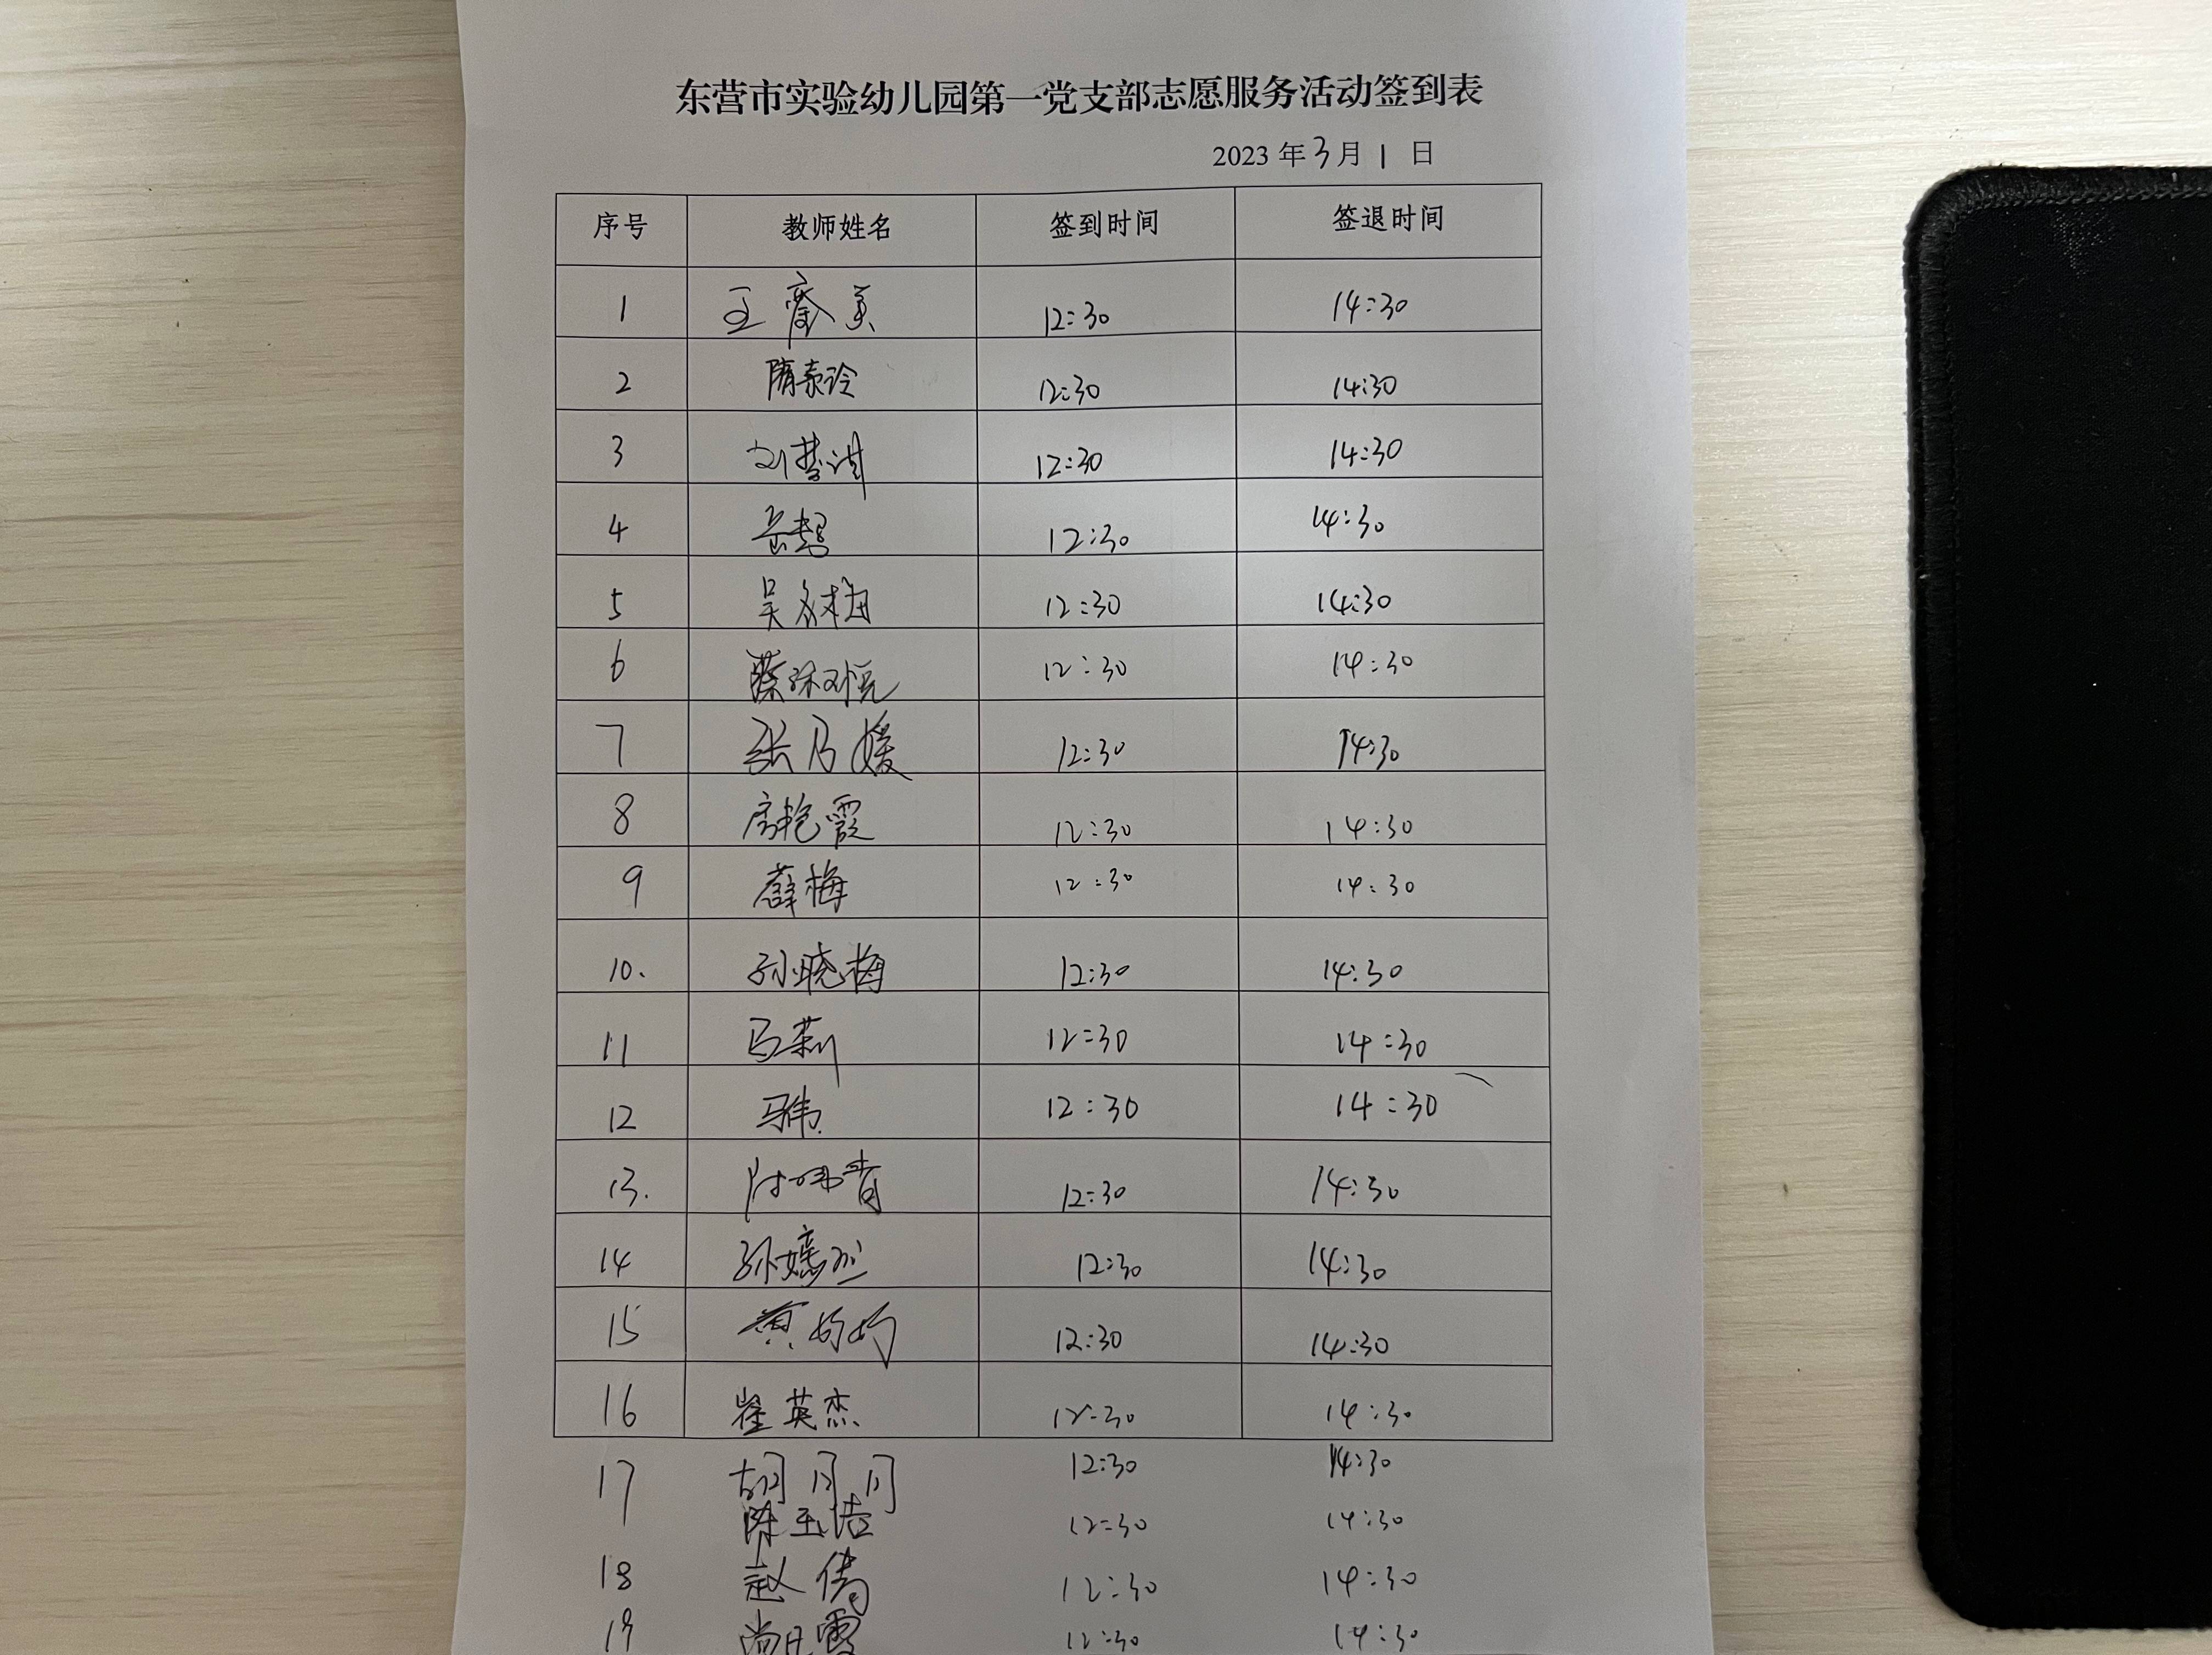 东营市实验幼儿园第一党支部志愿服务活动签到表
2023 年 3 月 1 日
序号 教师姓名 签到时间 签退时间
1 王 美 12:30 14:30
2 隋 玲 12:30 14:30
3 刘梦琪 12:30 14:30
4 岳 12:30 14:30
5 吴 梅 12:30 14:30
6 蔡 悦 12:30 14:30
7 张乃媛 12:30 14:30
8 房艳霞 12:30 14:30
9 薛梅 12:30 14:30
10. 孙晓梅 12:30 14:30
11 马莉 12:30 14:30
12 马伟 12:30 14:30
13. 12:30 14:30
14 孙嫣 12:30 14:30
15 黄 12:30 14:30
16 崔英杰 12:30 14:30
17 胡月月 12:30 14:30
陈玉洁 12:30 14:30
18 赵倩 12:30 14:30
19 尚 霞 12:30 14:30